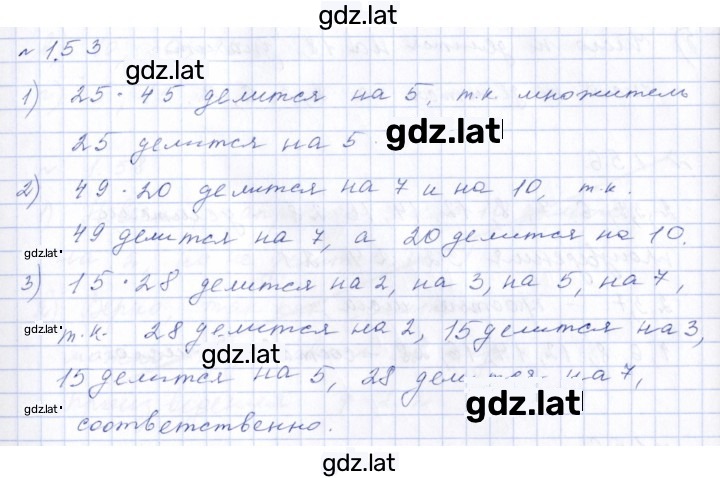 gdz.lat
№ 153
gdz.lat
1) 25 · 45 делится на 5, т.к. множитель
gdz.lat
25 делится на 5.
2) 49 · 20 делится на 7 и на 10, т.к.
49 делится на 7, а 20 делится на 10.
gdz.lat
3) 15 · 28 делится на 2, на 3, на 5, на 7,
gdz.lat
т.к. 28 делится на 2, 15 делится на 3,
gdz.lat
15 делится на 5, 28 делится на 7,
gdz.lat
gdz.lat
соответственно.
gdz.lat